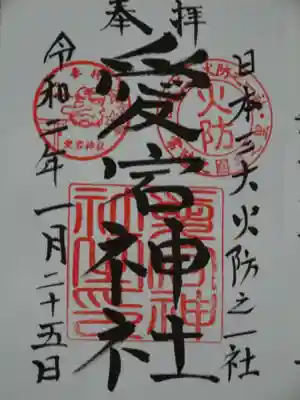 奉拝
日本三大火防之一社
火防
愛宕神社
愛宕神社
令和二年一月二十五日